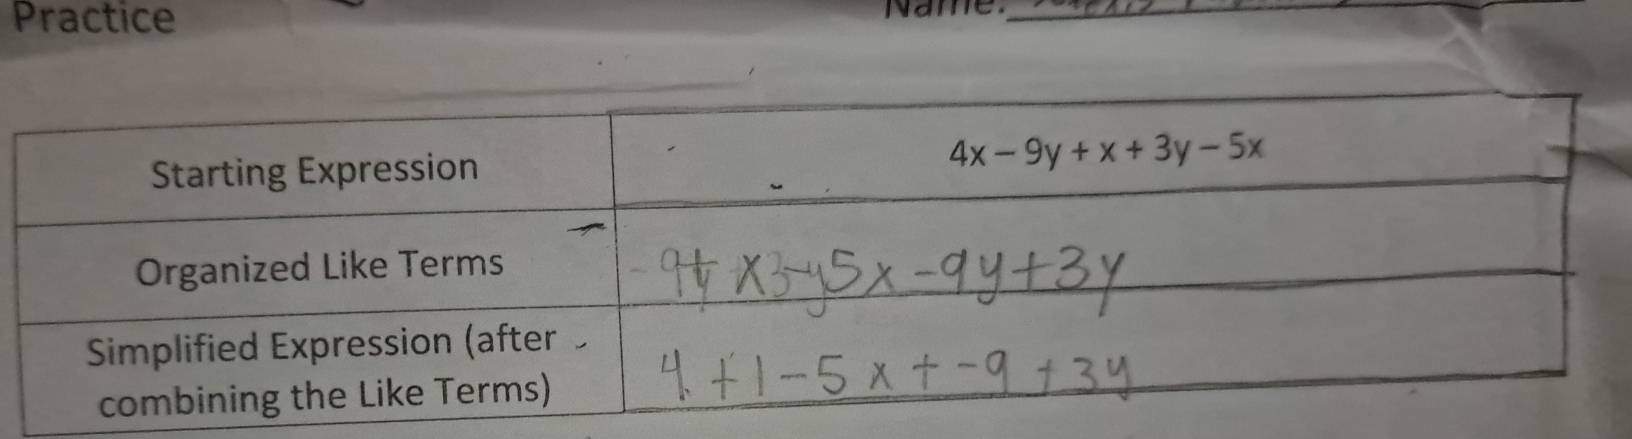 Practice
Name:
Starting Expression
4x – 9y + x + 3y – 5x
Organized Like Terms
5x -9y+3y
Simplified Expression (after
combining the Like Terms)
4 +1-5x + -9 +3y